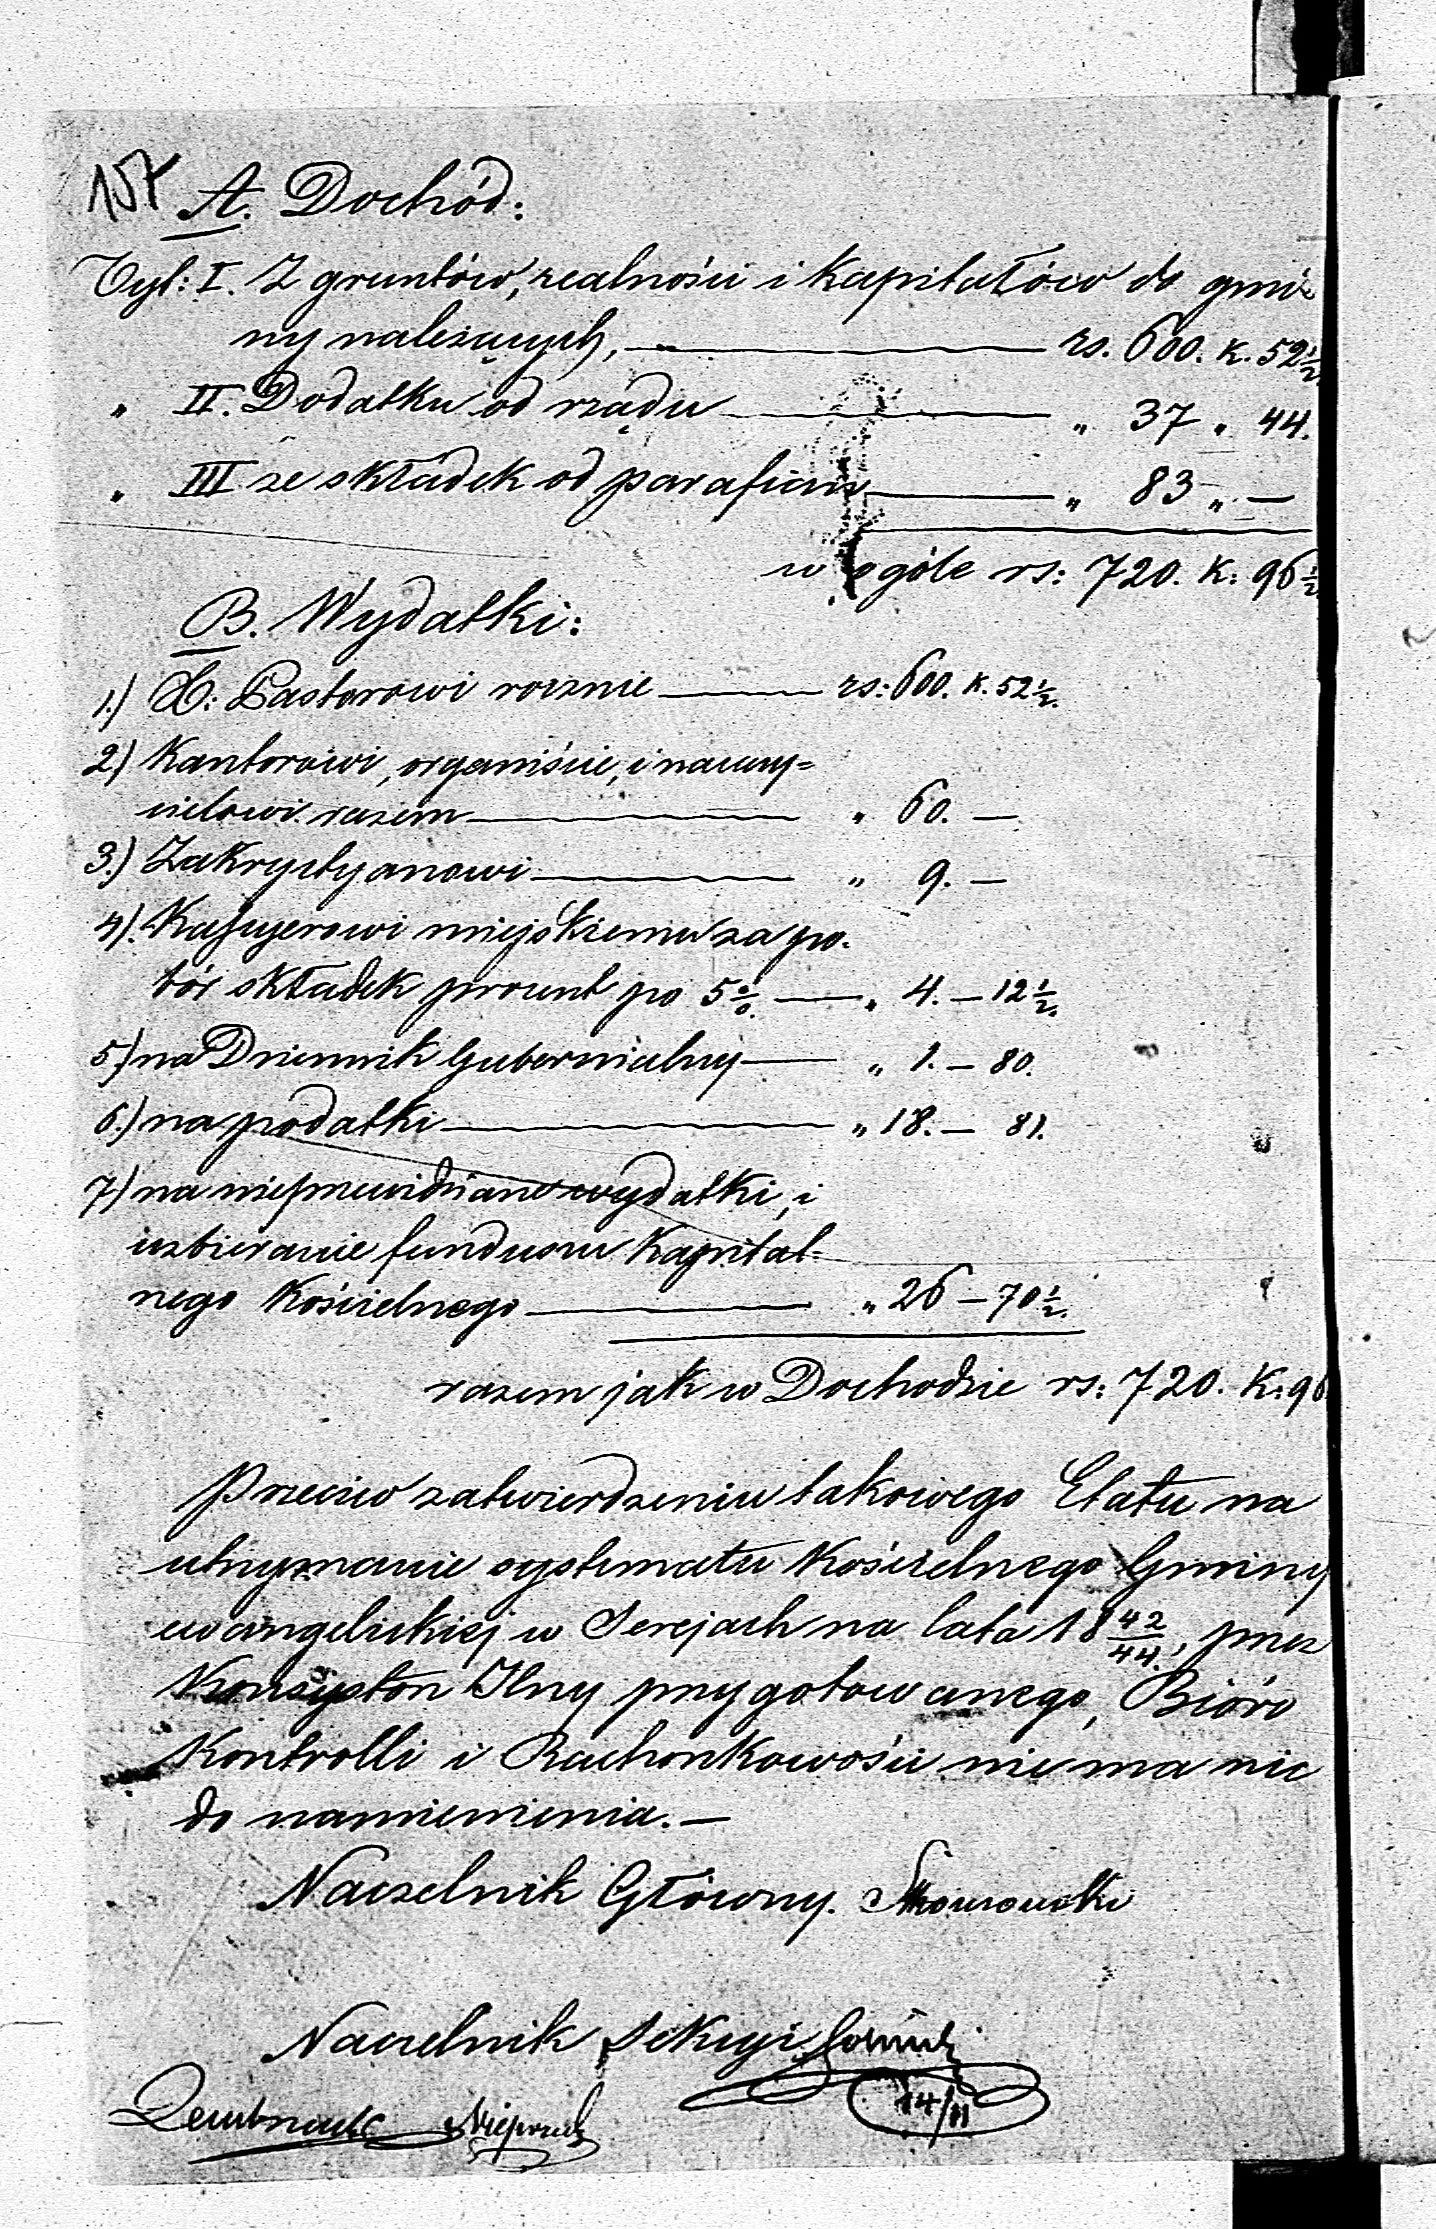 157 A. Dochód:
Tyt: I. Z gruntów, realności i kapitałów do gmi-
ny należących, — rs. 600. k. 52½.
" II. Dodatku od rządu — " 37 " 44.
" III ze składek od parafian — " 83 " —
w ogóle rs: 720. K: 96½
B. Wydatki:
1.) X: Pastorowi rocznie — rs: 600. k. 52½.
2) Kantorowi, organiście, i nauczy=
cielowi razem — " 60. —
3.) Zakrystyanowi — " 9. —
4). Kassyerowi miejskiemu za po-
bór składek procent po 5%. — " 4. — 12½.
5.) na Dziennik Gubernialny — " 1. — 80.
6.) na podatki — " 18. — 81.
7) na nieprzewidziane wydatki, i
uzbieranie funduszu Kapital=
nego Kościelnego — " 26 — 70½.
razem jak w Dochodzie rs: 720. K: 96
Przeciw zatwierdzeniu takowego Etatu na
utrzymanie systematu Kościelnego Gminy
ewangelickiej w Serejach na lata 18 42/44., przez
Konsystorz Jlny przygotowanego, Bióro
Kontrolli i Rachonkowości nie ma nic
do namienienia. —
Naczelnik Główny.
Naczelnik Sekcyi
14/11